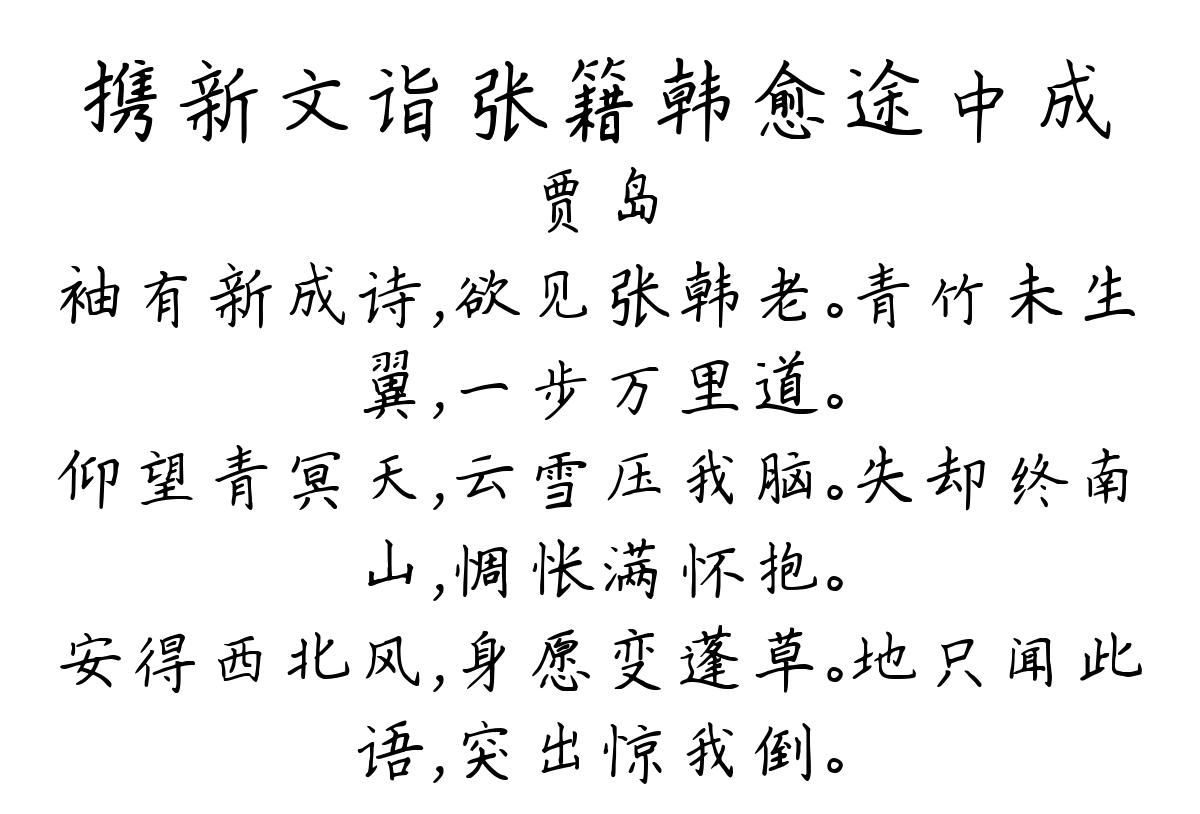 携新文诣张籍韩愈途中成
贾岛
袖有新成诗,欲见张韩老。青竹未生
翼,一步万里道。
仰望青冥天,云雪压我脑。失却终南
山,惆怅满怀抱。
安得西北风,身愿变蓬草。地只闻此
语,突出惊我倒。